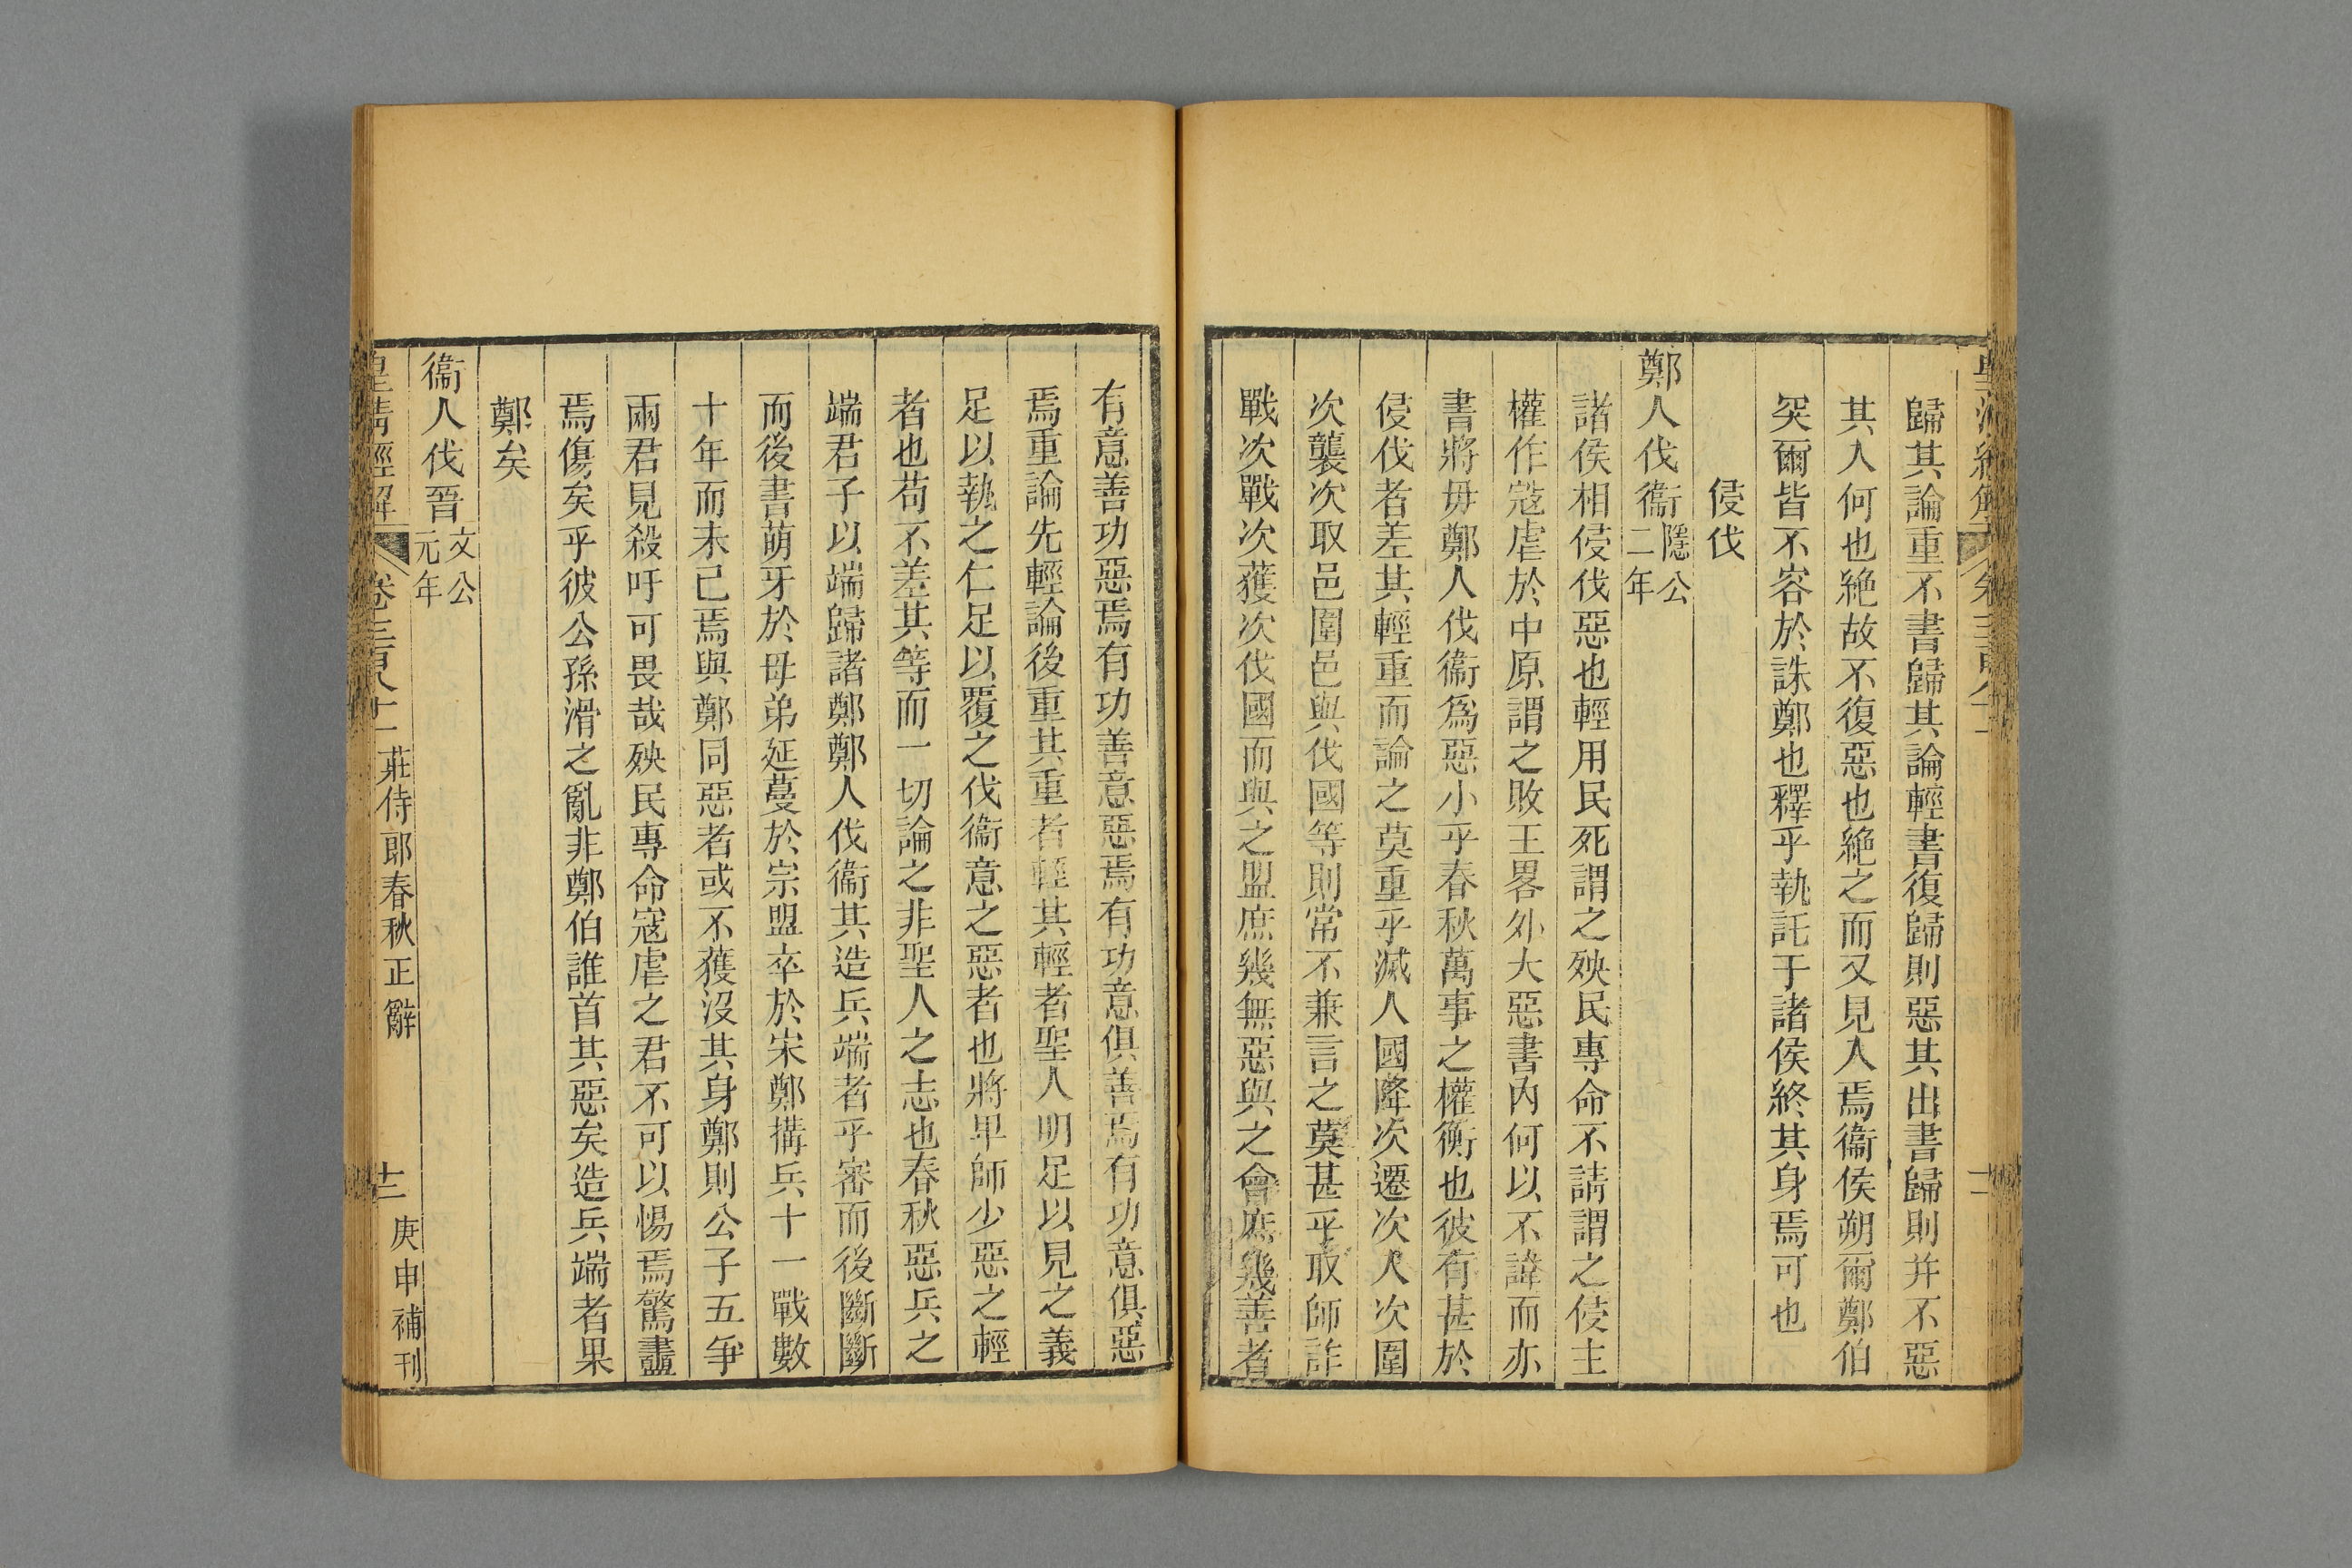 歸其論重不書歸其論輕書復歸則惡其出書歸則并不惡
其人何也絶故不復惡也絶之而又見入焉衞侯朔爾鄭伯
突爾皆不容於誅鄭也釋乎執託于諸侯終其身焉可也
侵伐
鄭人伐衞隱公二年
諸侯相侵伐惡也輕用民死謂之殃民專命不請謂之侵主
權作寇虐於中原謂之敗王畧外大惡書內何以不諱而亦
書將毋鄭人伐衞爲惡小乎春秋萬事之權衡也彼有甚於
侵伐者差其輕重而論之莫重乎滅人國降次遷次入次圍
次襲次取邑圍邑與伐國等則常不兼言之莫甚乎取師詐
戰次戰次獲次伐國而與之盟庶幾無惡與之會庶幾善者
有意善功惡焉有功善意惡焉有功意俱善焉有功意俱惡
焉重論先輕論後重其重者輕其輕者聖人明足以見之義
足以執之仁足以覆之伐衞意之惡者也將卑師少惡之輕
者也苟不差其等而一切論之非聖人之志也春秋惡兵之
端君子以端歸諸鄭鄭人伐衞其造兵端者乎審而後斷斷
而後書萌牙於母弟延蔓於宗盟卒於宋鄭搆兵十一戰數
十年而未已焉與鄭同惡者或不獲沒其身鄭則公子五爭
兩君見殺吁可畏哉殃民專命寇虐之君不可以惕焉驚衋
焉傷矣乎彼公孫滑之亂非鄭伯誰首其惡矣造兵端者果
鄭矣
衞人伐晉文公元年
皇淸經解 卷三百八十一 莊侍郎春秋正辭 十二 庚申補刊